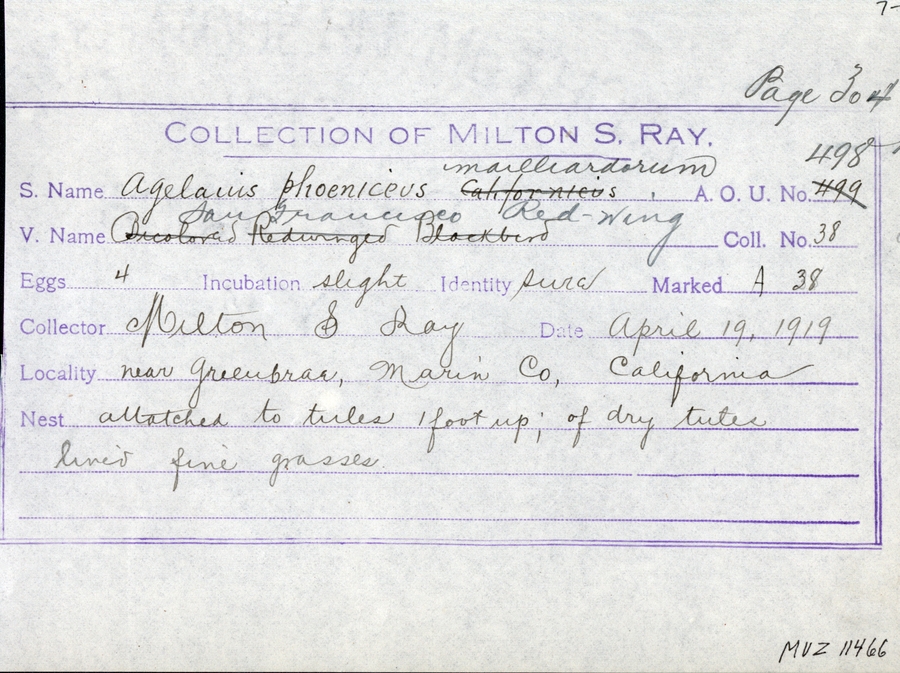 7-
Page 304
COLLECTION OF MILTON S. RAY.
mailliardorum 498
S. Name Agelaius phoeniceus Californicus A. O. U. No. 499
San Francisco Red-wing
V. Name Bicolored Redwinged Blackbird Coll. No. 38
Eggs 4 Incubation slight Identity sure Marked A 38
Collector Milton S Ray Date April 19, 1919
Locality near Greenbrae, Marin Co, California
Nest attatched to tules 1 foot up; of dry tules
lined fine grasses.
MVZ 11466